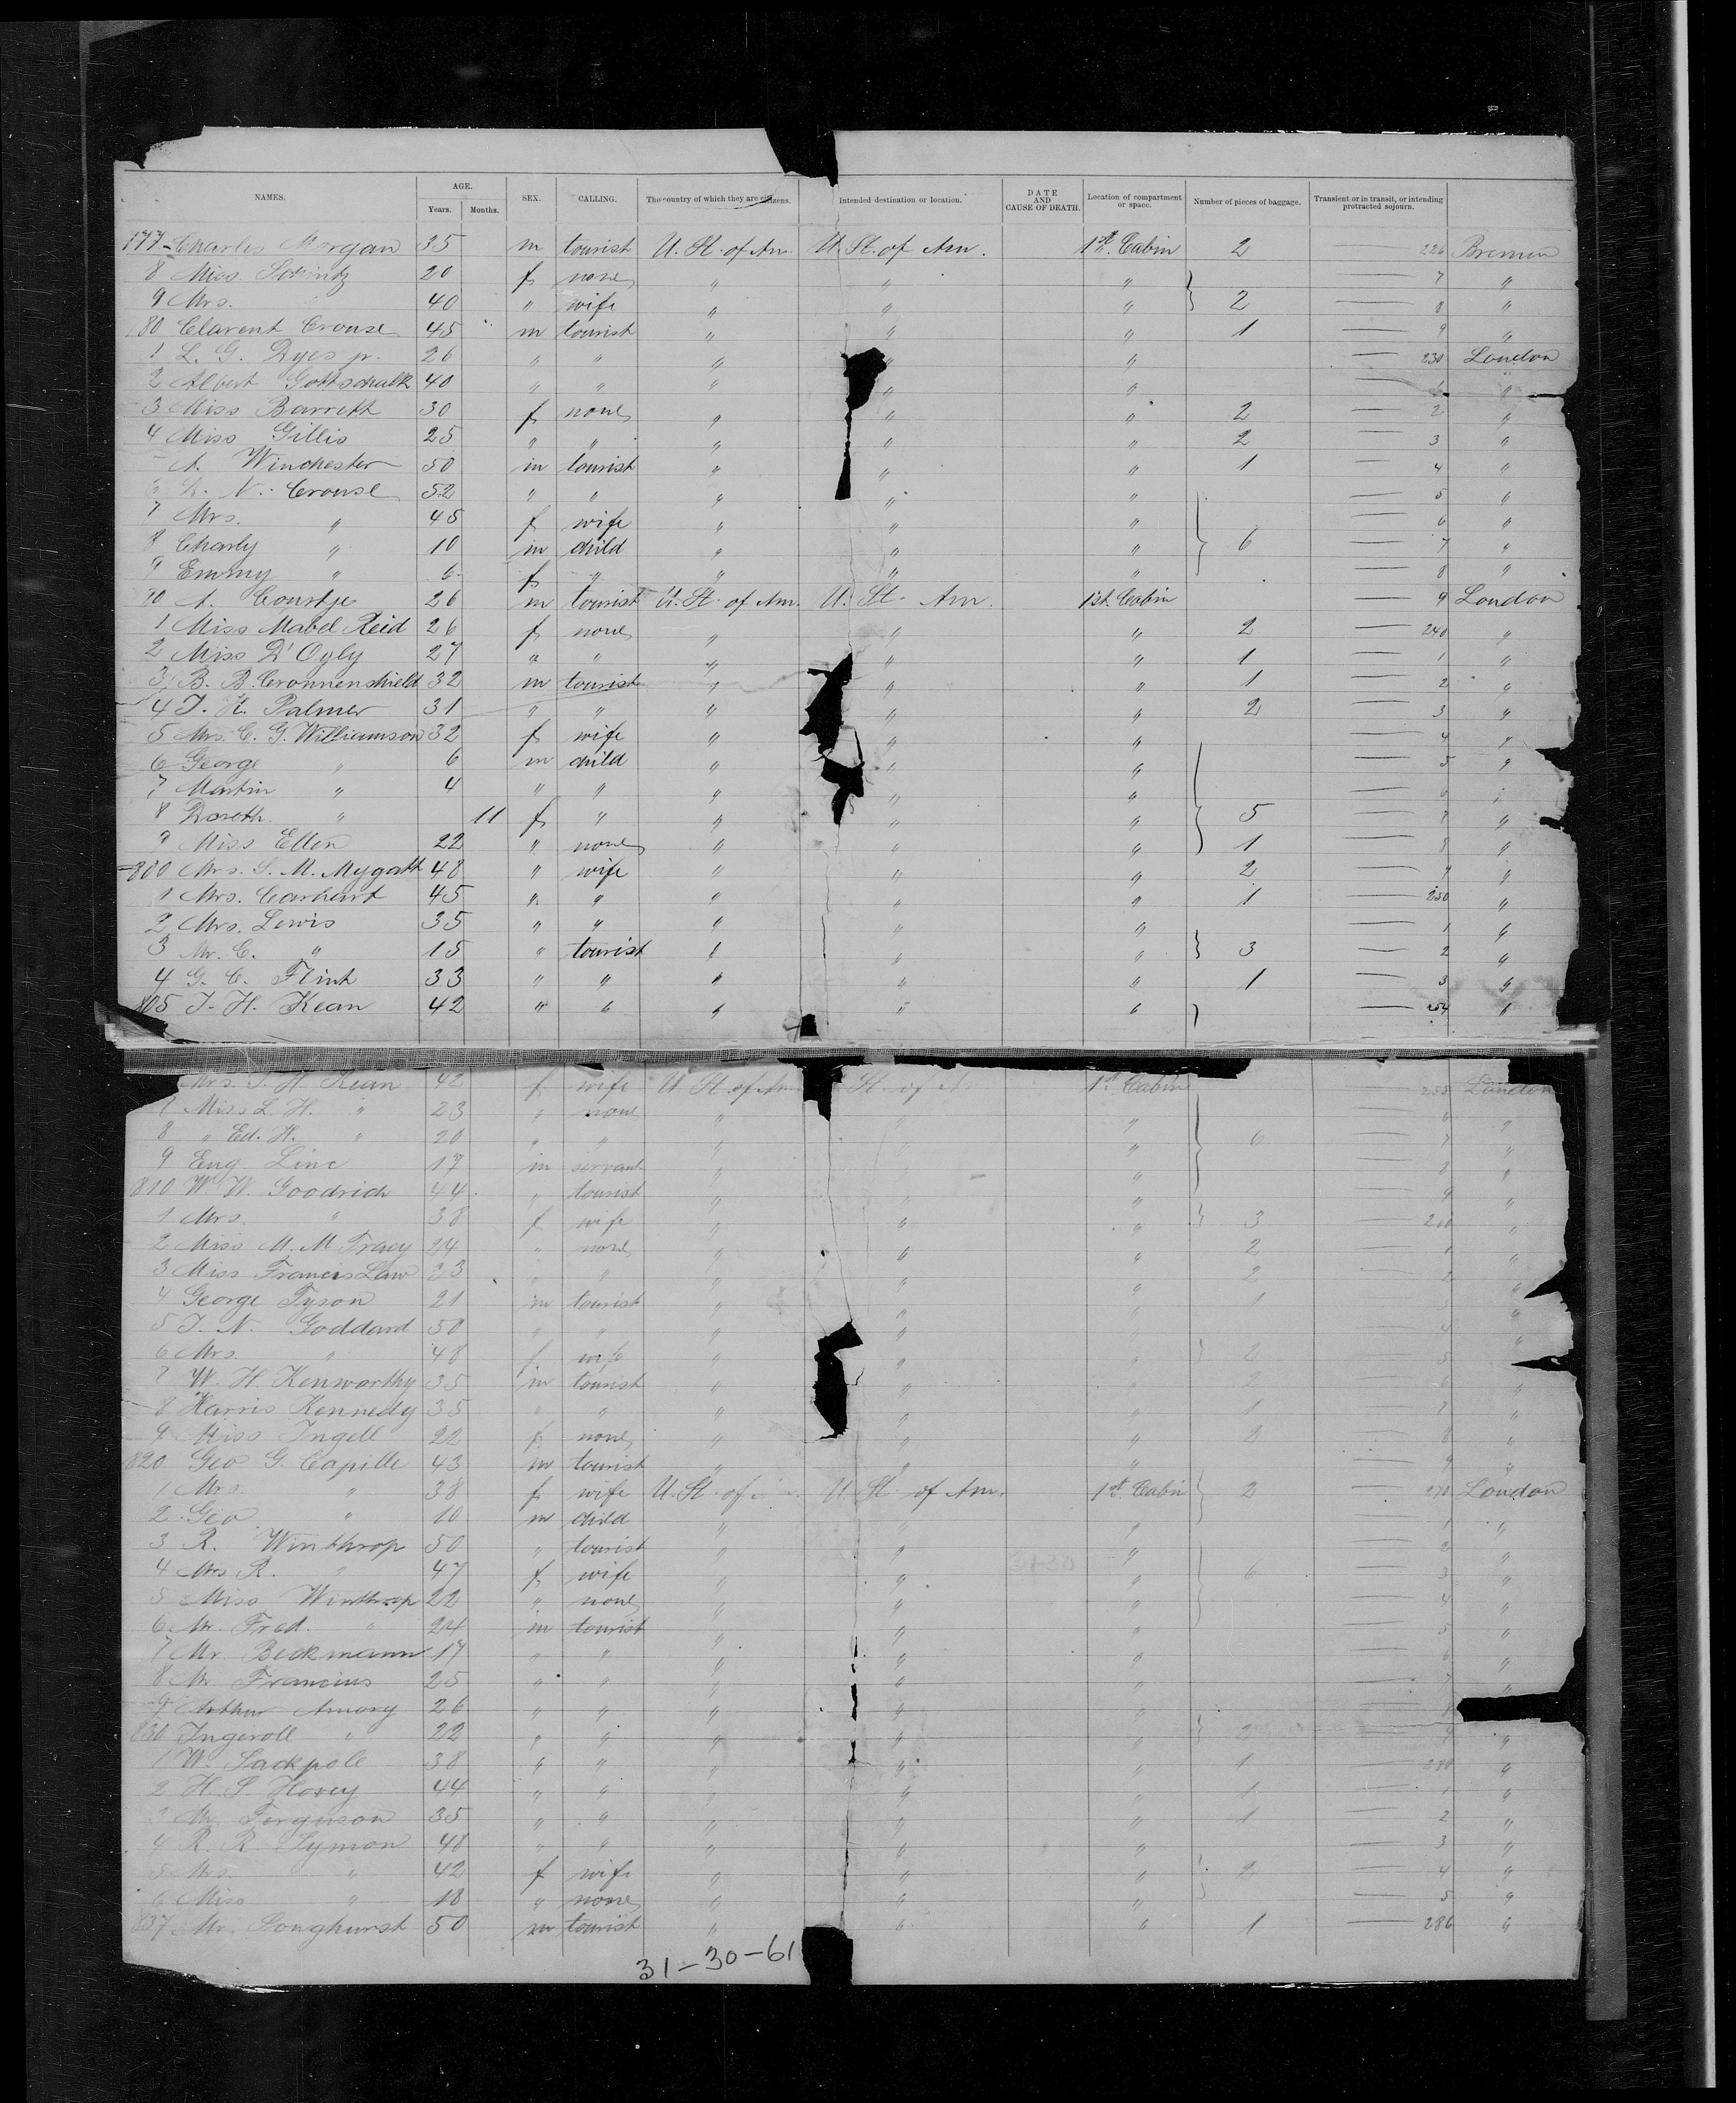 NAMES. AGE. Years. Months. SEX. CALLING. The country of which they are citizens. Intended destination or location. DATE AND CAUSE OF DEATH. Location of compartment or space. Number of pieces of baggage. Transient or in transit, or intending protracted sojourn.
777 Charles Morgan 35 m tourist U. St. of Am. U. St. of Am. 1st. Cabin 2 — 226 Bremen
8 Miss 20 f none " " " — 7 "
9 Mrs. " 40 " wife " " " 2 — 8 "
780 Clarent Crouse 45 m tourist " " " 1 — 9 "
1 L. G. Dyes jr. 26 " " " " " — 230 London
2 Albert Gottschalk 40 " " " " " — 1 "
3 Miss Barrett 30 f none " " " 2 — 2 "
4 Miss Gillis 25 " " " " " 2 — 3 "
A. Winchester 50 m tourist " " " 1 — 4 "
6 N. Crouse 52 " " " " " — 5 "
7 Mrs. " 45 f wife " " " — 6 "
8 Charly " 10 m child " " " 6 — 7 "
9 Emmy " 6 f " " " " — 8 "
90 A. 26 m tourist U. St. of Am. U. St. Am. 1st. Cabin — 9 London
1 Miss Mabel Reid 26 f none " " " 2 — 240 "
2 Miss D'Ogly 27 " " " " " 1 — 1 "
3 B. B. Cronnenshield 32 m tourist " " " 1 — 2 "
4 T. H. Palmer 31 " " " " " 2 — 3 "
5 Mrs. C. G. Williamson 32 f wife " " " — 4 "
6 George " 6 m child " " " — 5 "
7 Martin " 4 " " " " " — 6 "
8 Doroth. " 11 f " " " " 5 — 7 "
9 Miss Ellen 22 " none " " " 1 — 8 "
800 Mrs. S. M. Mygatt 48 " wife " " " 2 — 9 "
1 Mrs. Carhart 45 " " " " " 1 — 250 "
2 Mrs. Lewis 35 " " " " " — 1 "
3 Mr. C. " 15 " tourist " " " 3 — 2 "
4 G. C. Flint 33 " " " " " 1 — 3 "
805 J. H. Kean 42 " " " " " — 254 "
Mrs. J. H. Kean 42 f wife U. St. of Am. St. of A 1st. Cabin — 255 London
1 Miss L. H. " 23 " none " " — 6 "
8 " Ed. H. " 20 " " " " 6 — 7 "
9 Eug. Linc 17 m servant " " — 8 "
810 W. W. Goodrich 44 " tourist " " " — 9 "
1 Mrs. " 38 f wife " " " 3 — 260 "
2 Miss M. M. Tracy 24 " none " " " 2 — 1 "
3 Miss Francis Law 23 " " " " " 2 — 2 "
4 George Tyson 21 m tourist " " " 1 — 3 "
5 J. N. Goddard 50 " " " " " — 4 "
6 Mrs. " 48 f wife " " " 2 — 5 "
7 W. H. Kenworthy 35 m tourist " " " 2 — 6 "
8 Harris Kennedy 35 " " " " " 1 — 7 "
9 Miss Ingell 22 f none " " " 2 — 8 "
820 Geo G. Capelle 43 m tourist " " " — 9 "
1 Mrs. " 38 f wife U. St. of U. St. of Am. 1st. Cabin 2 — 270 London
2 Geo " 10 m child " " " — 1 "
3 R. Winthrop 50 " tourist " " " — 2 "
4 Mrs R. " 47 f wife " " " 6 — 3 "
5 Miss Winthrop 22 " none " " " — 4 "
6 Mr. Fred. " 24 m tourist " " " — 5 "
7 Mr. Beckmann 17 " " " " " — 6 "
8 Mr. Francius 25 " " " " " — 7 "
9 Arthur Amory 26 " " " " " — 8
830 Ingeroll " 22 " " " " " 2 — 9 "
1 W. Sackpole 38 " " " " " 1 — 280 "
2 H. S. Hovey 44 " " " " " 1 — 1 "
3 Mr. Ferguson 35 " " " " " 1 — 2 "
4 R. R. Symon 48 " " " " " — 3 "
5 Mrs. " 42 f wife " " " 2 — 4 "
6 Miss " 18 " none " " " — 5 "
837 Mr. Longhurst 50 m tourist " " " 1 — 286 "
31-30-61